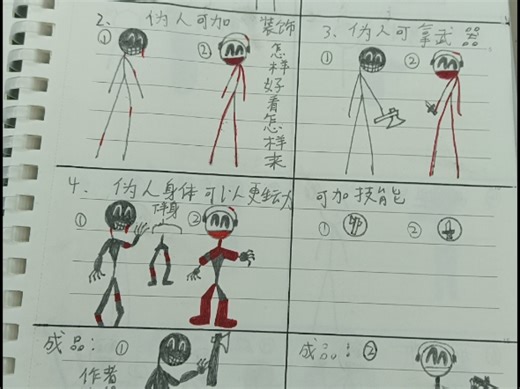 2、伪人可加
装饰
怎样好看怎样来
① ②
3、伪人可拿武器
① ②
4、伪人身体可以更生动
① 下身 ②
可加技能
① ②
成品：①
作者
成品：②